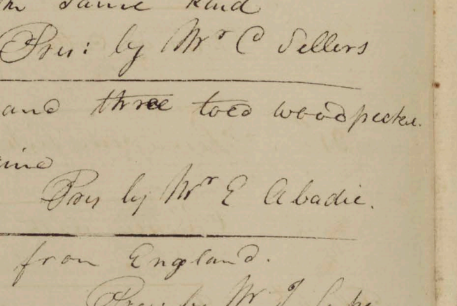 the same kind
Pres: by Mr C Sellers
and three toed woodpecker.
Pres by Mr E Abadie.
from England.
Pres: by Mr J